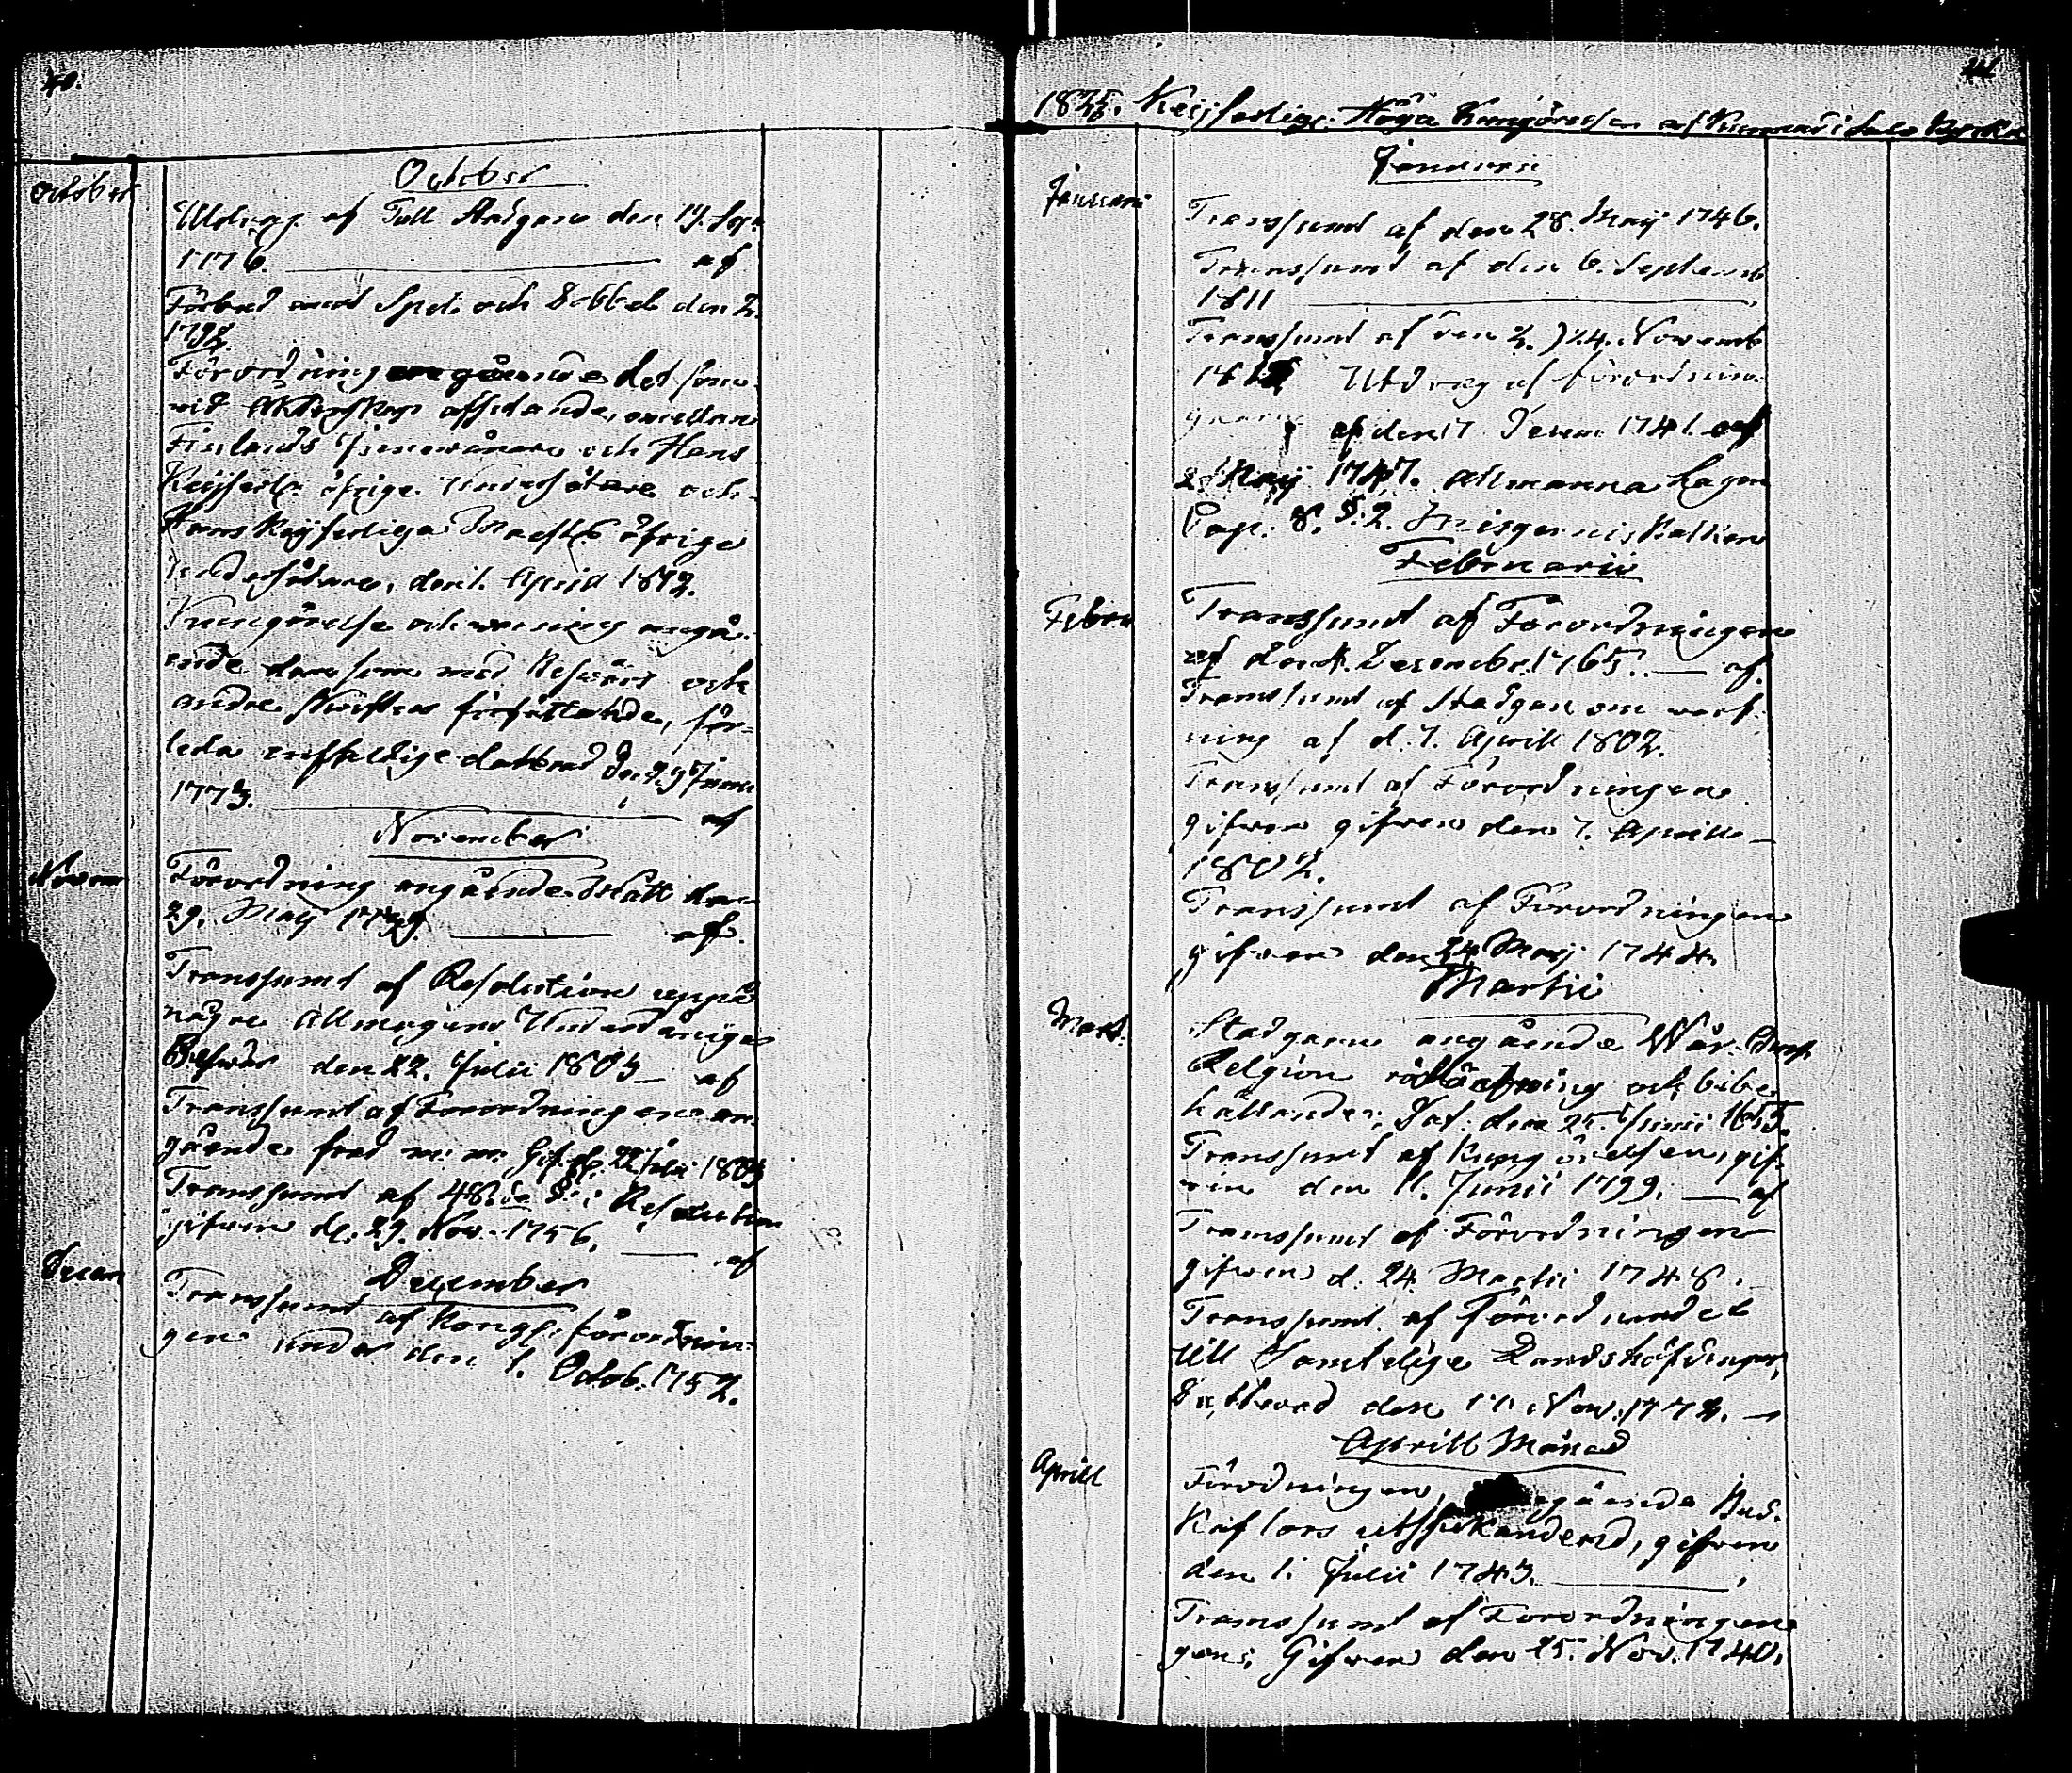 40.
October
October
Utdrag af Tull Stadgarne den 19. Sept.
1776. af
Förbud mot Spel och Dobbel den 2.
1792.
Förordning angående det som
vid äktenskaps afslutande, mellan
Finlands Innewånare och Hans
Keijserl: öfrige Undersåtare och
Hans Keijserliga Maests öfrige
undersåtare, den 1. April 1812.
Kungörelse och warning angå-
ende dem som med Beswärs och
andre skrifters författande, för-
leda enfaldige datterad d. 29 Janu
1773. af
November
Novem
Förordning angående Skatt den
29. Maij 1739. af.
Transsumt af Resolution uppå
någre Allmogens Underdånige
Beswär den 22. Julii 1803 af
Transsumt af Förordningen an-
gående fred m: m: Gif. d. 22 Julii 1803
Transsumt af 48.de §: i Resolution
gifwen d. 29. Nov. 1756. af
Decem
December
Transsumt af Kongl. förordnin-
gen under den 1. Octob. 1752.
41
1825. Keijserlige Höga Kungörelser af Kunnad i Kyrka
Januarii
Januari
Transsumt af den 28. Maij 1746.
Transsumt af den 6. Septemb
1811
Transsumt af den 24. Novemb
Utdrag af förordnin-
garne af den 17 Decem 1741. af
2. Maij 1747. Allmänna Lagen
Cap. 8. §. 2. Missgernis Balken
Februarii
Febru
Transsumt af Förordningen
af den 4. Decembr. 1765. af.
Transsumt af Stadgan om warf-
ning af d. 7. Aprill 1802.
Transsumt af Förordningen
gifwen gifwen den 7. Aprill
1802.
Transsumt af Förordningen
gifwen den 24 Maij 1744.
Martii
Mart.
Stadgarne angående Wår Christ
Religion rätt öfning och bibe-
hållande; Dat: den 25. Junii 1655.
Transsumt af Kungörelsen, gif-
win den 11. Junii 1799. af
Transsumt af Förordningen
gifwen d. 24 Martii 1748.
Transsumt af Förordnandet
till Samtelige Landshöfdingar,
Datterad den 17. Nov. 1772.
Aprill Månad
Aprill
Förordningen, angående Bud-
kaflors utskickanderd, gifwen
den 1. Julii 1743.
Transsumt af Förordningen
gens; Gifwen den 25. Nov. 1740.